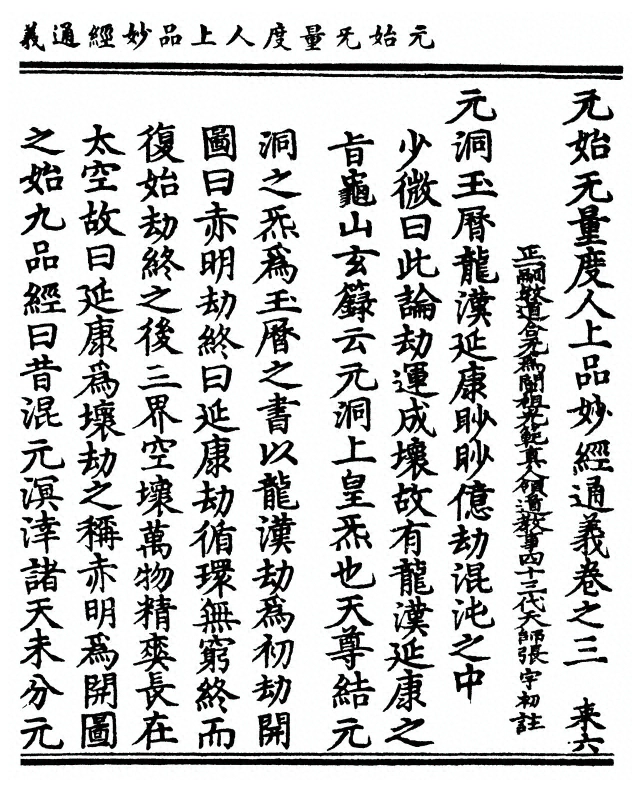 元始无量度人上品妙經通義
元始无量度人上品妙經通義卷之三 来六
正嗣敎道合无爲闡祖光範眞人領道敎事四十三代天師張宇初註
元洞玉曆龍漢延康眇眇億劫混沌之中
少微曰此論劫運成壞故有龍漢延康之
旨龜山玄籙云元洞上皇炁也天尊結元
洞之炁爲玉曆之書以龍漢劫爲初劫開
圖曰赤明劫終曰延康劫循環無窮終而
復始劫終之後三界空壞萬物精爽長在
太空故曰延康爲壞劫之稱赤明爲開圖
之始九品經曰昔混元溟涬諸天未分元